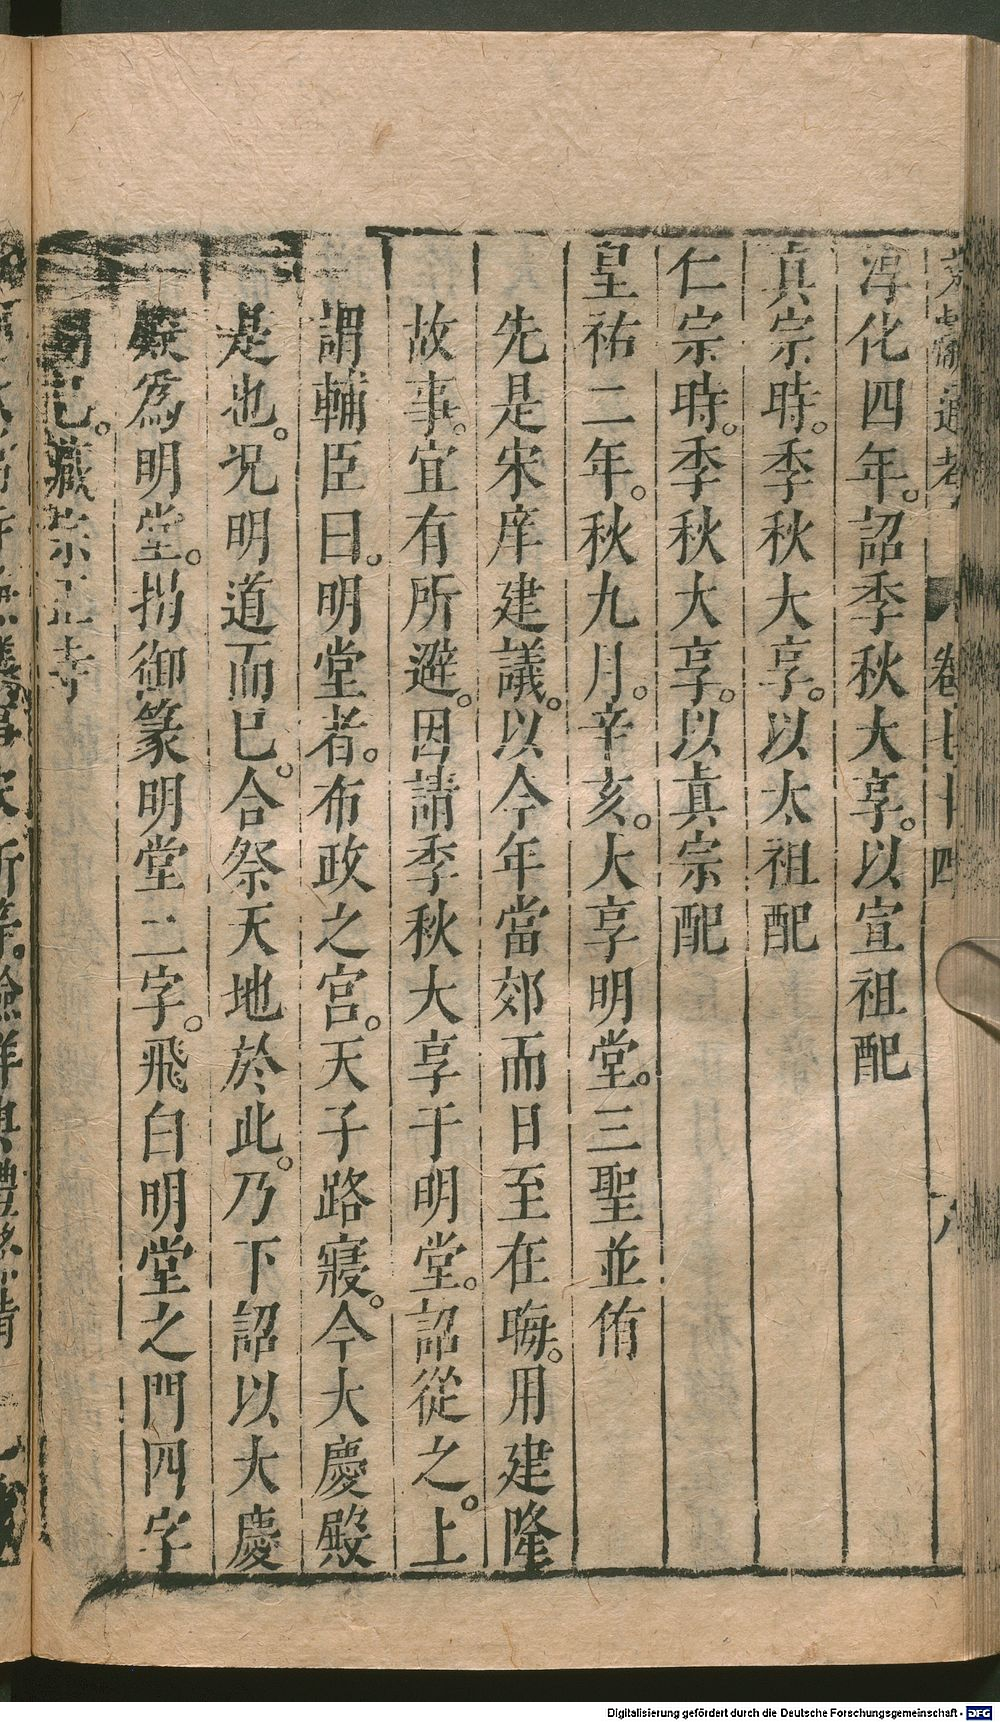 文獻通考 卷七十四 八
淳化四年。詔季秋大享。以宣祖配
真宗時。季秋大享。以太祖配
仁宗時。季秋大享。以真宗配
皇祐二年。秋九月。辛亥。大享明堂。三聖並侑
先是宋庠建議。以今年當郊而日至在晦。用建隆
故事。宜有所避。因請季秋大享于明堂。詔從之。上
謂輔臣曰。明堂者。布政之宮。天子路寢。今大慶殿
是也。况明道而已。合祭天地於此。乃下詔以大慶
殿為明堂。揭御篆明堂二字。飛白明堂之門四字
而已。藏宗正寺
Digitalisierung gefördert durch die Deutsche Forschungsgemeinschaft - DFG